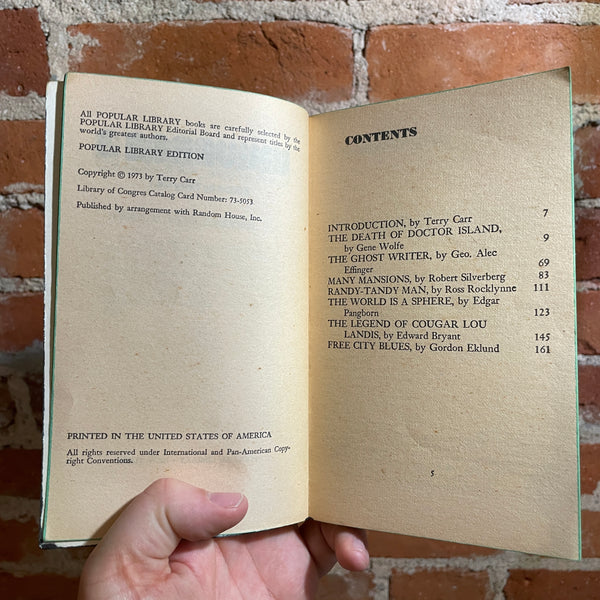 All POPULAR LIBRARY books are carefully selected by the
POPULAR LIBRARY Editorial Board and represent titles by the
world's greatest authors.
POPULAR LIBRARY EDITION
Copyright © 1973 by Terry Carr
Library of Congres Catalog Card Number: 73-5053
Published by arrangement with Random House, Inc.
PRINTED IN THE UNITED STATES OF AMERICA
All rights reserved under International and Pan-American Copy-
right Conventions.
CONTENTS
INTRODUCTION, by Terry Carr 7
THE DEATH OF DOCTOR ISLAND,
by Gene Wolfe 9
THE GHOST WRITER, by Geo. Alec
Effinger 69
MANY MANSIONS, by Robert Silverberg 83
RANDY-TANDY MAN, by Ross Rocklynne 111
THE WORLD IS A SPHERE, by Edgar
Pangborn 123
THE LEGEND OF COUGAR LOU
LANDIS, by Edward Bryant 145
FREE CITY BLUES, by Gordon Eklund 161
5